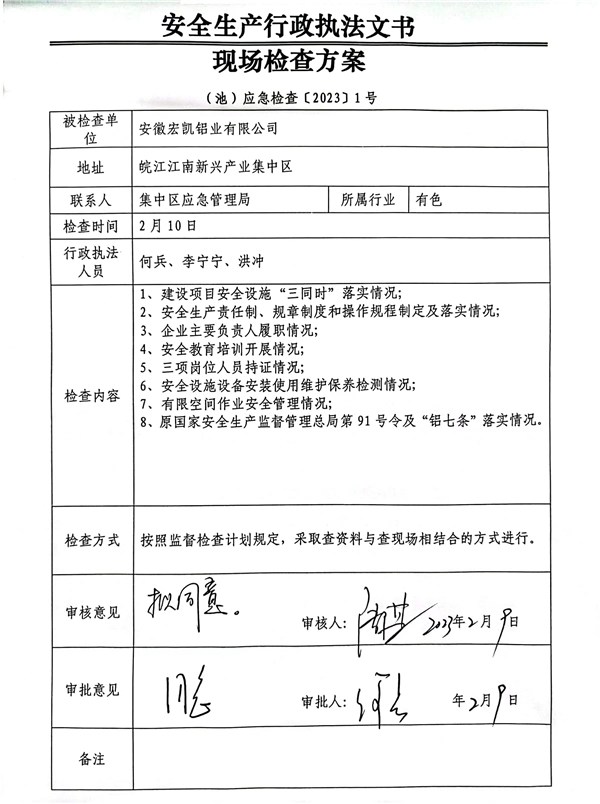 安全生产行政执法文书
现场检查方案
（池）应急检查〔2023〕1号
被检查单位 安徽宏凯铝业有限公司
地址 皖江江南新兴产业集中区
联系人 集中区应急管理局 所属行业 有色
检查时间 2月10日
行政执法人员 何兵、李宁宁、洪冲
检查内容
1、建设项目安全设施“三同时”落实情况；
2、安全生产责任制、规章制度和操作规程制定及落实情况；
3、企业主要负责人履职情况；
4、安全教育培训开展情况；
5、三项岗位人员持证情况；
6、安全设施设备安装使用维护保养检测情况；
7、有限空间作业安全管理情况；
8、原国家安全生产监督管理总局第91号令及“铝七条”落实情况。
检查方式 按照监督检查计划规定，采取查资料与查现场相结合的方式进行。
审核意见 拟同意。 审核人： 2023年2月9日
审批意见 同意 审批人： 年2月9日
备注